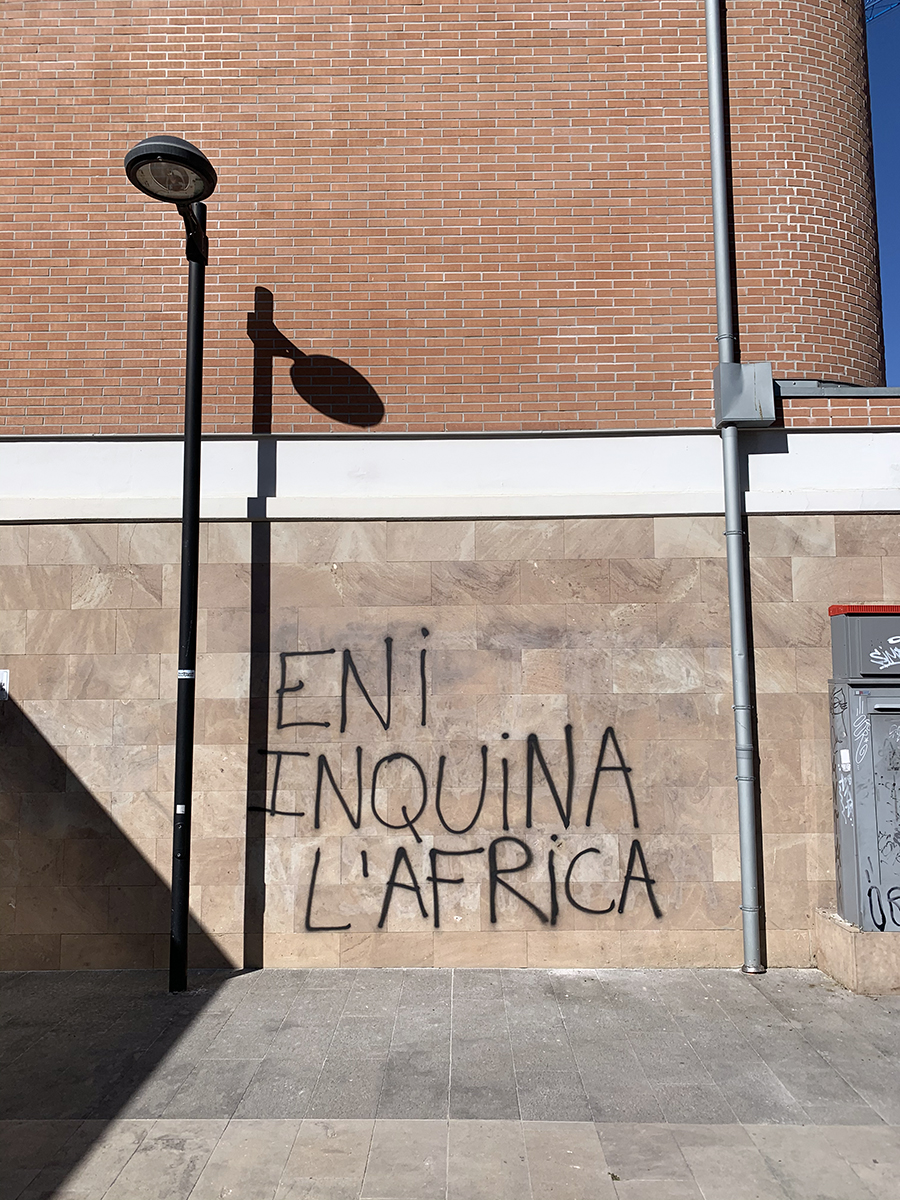 ENi
INQUiNA
L'AFRiCA